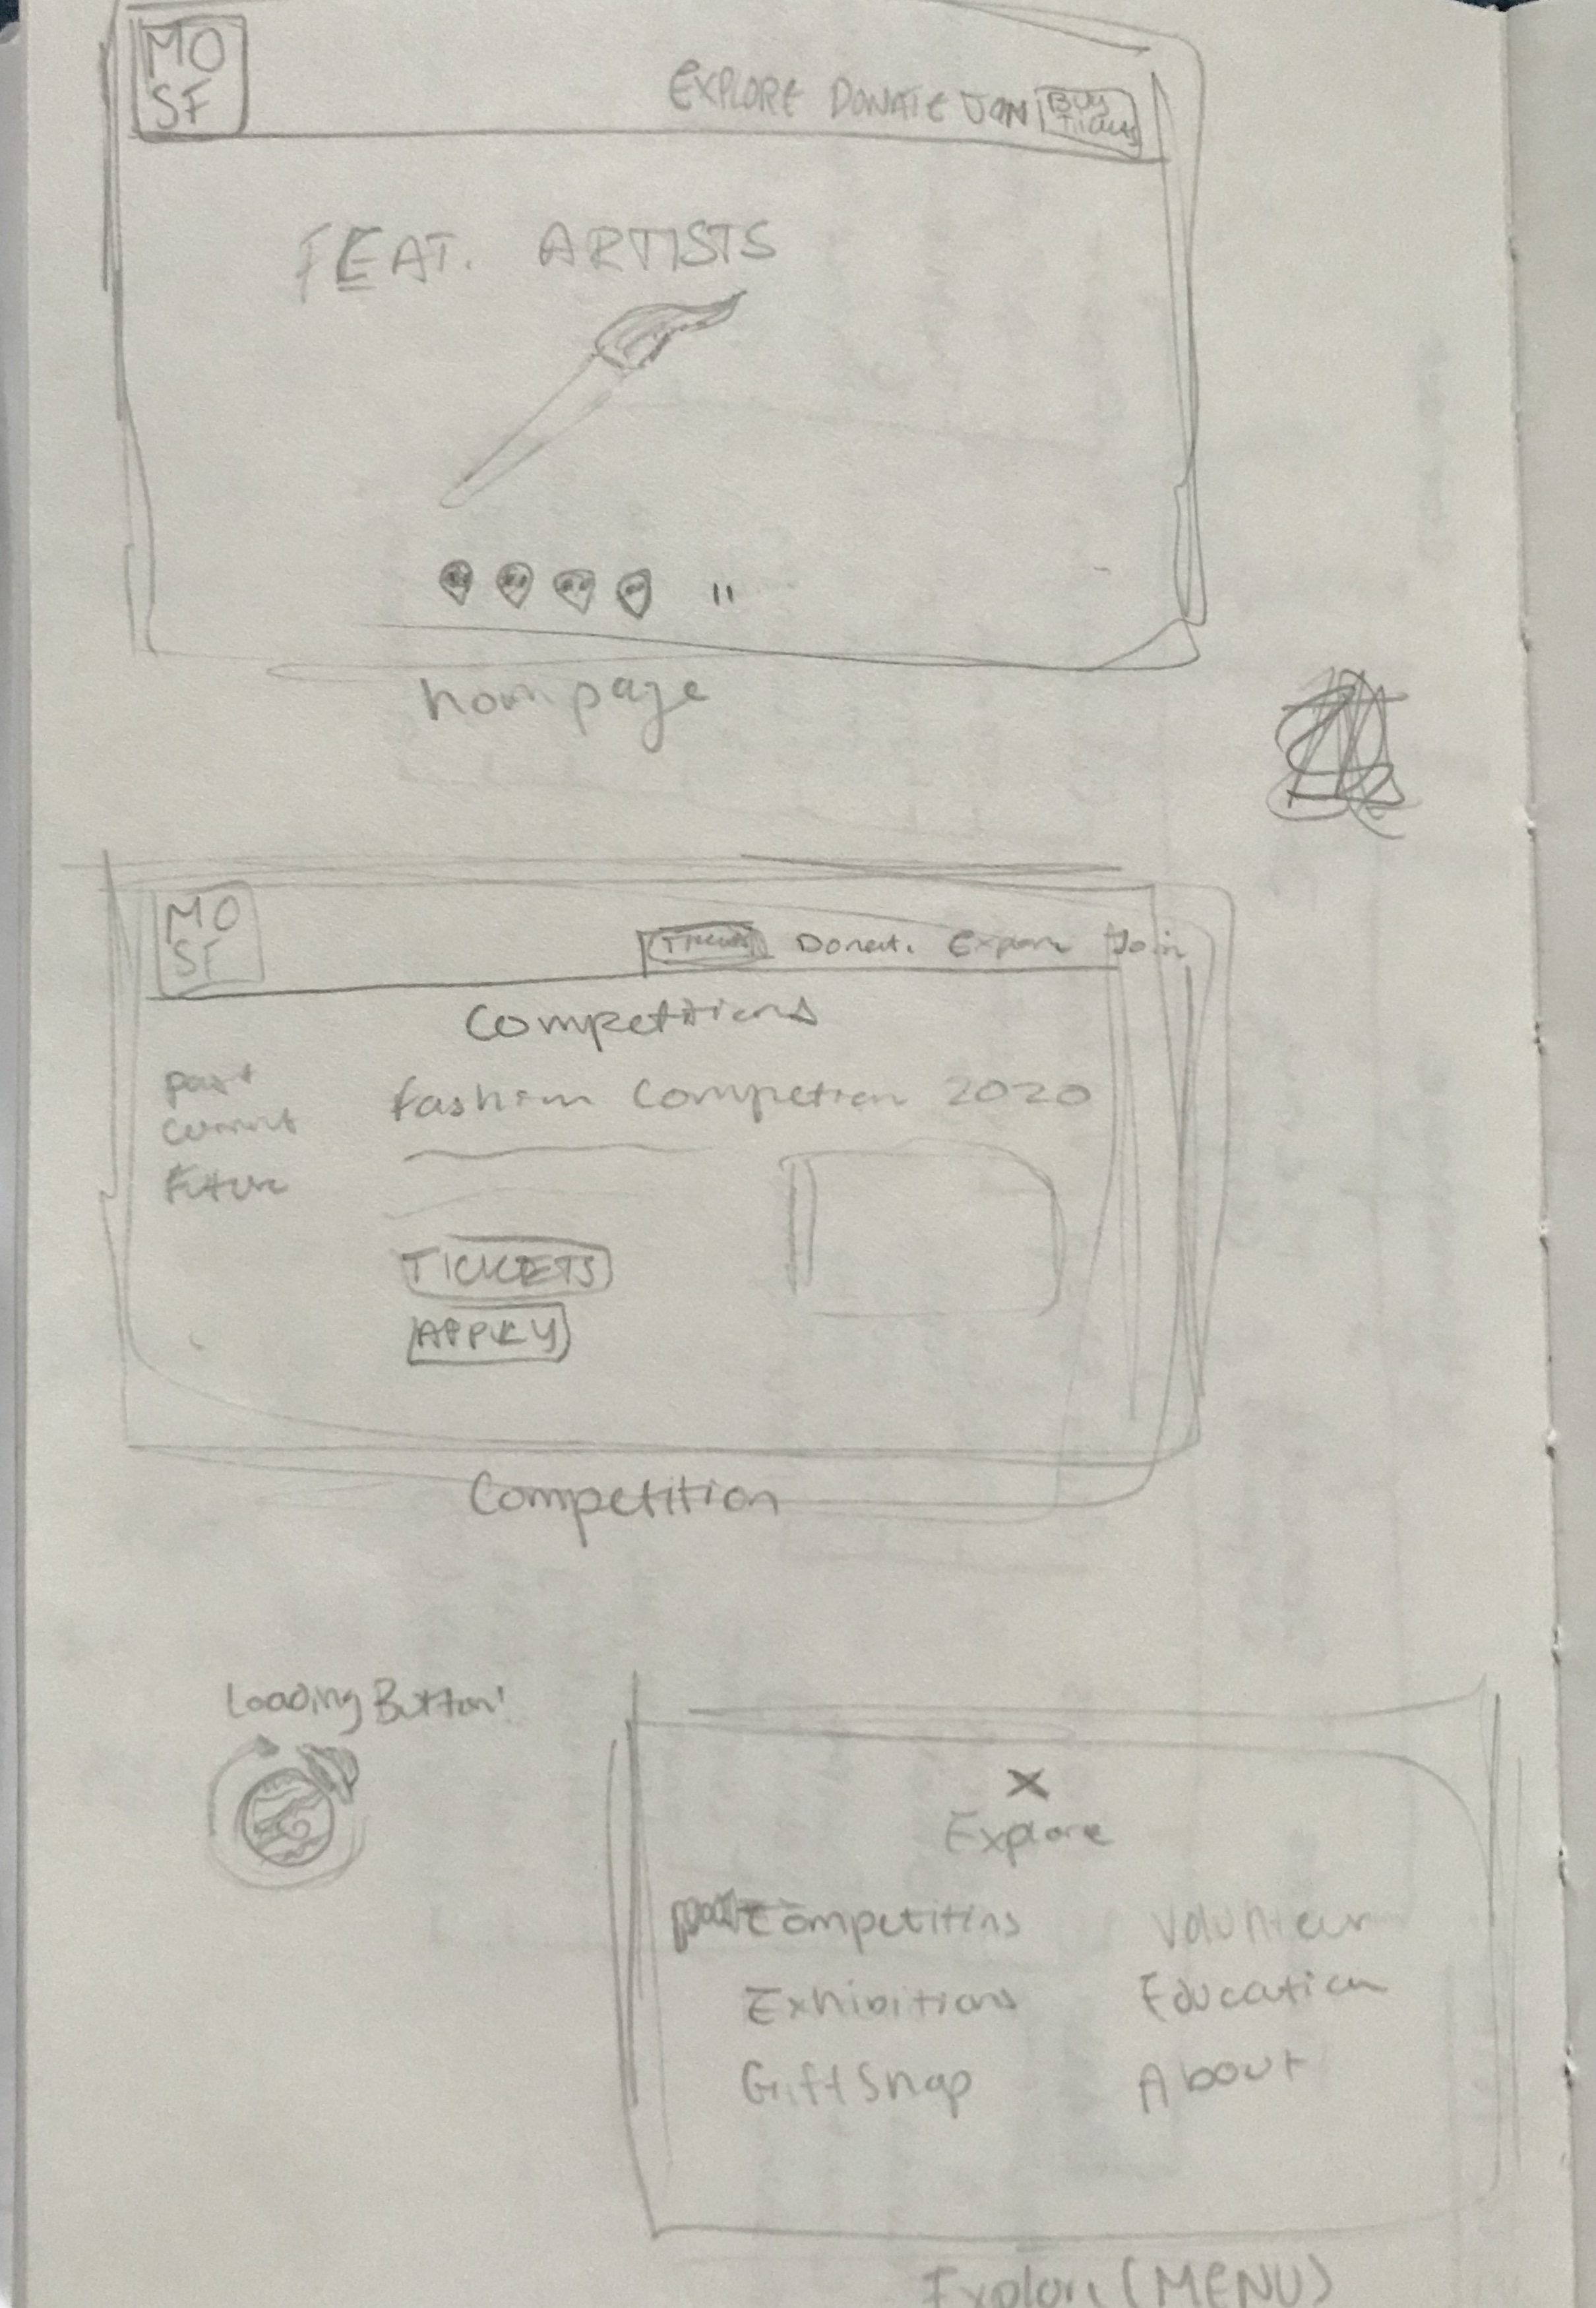 MO
SF
EXPLORE DONATE JOIN BUY
FEAT. ARTISTS
hompage
MO
SF
Tickets Donate Explore Join
Competitions
past
current
future
Fashion Competion 2020
TICKETS
APPLY
Competition
Loading Button!
X
Explore
Competitins Volunteur
Exhibitions Education
Gift Shop About
Explore (MENU)